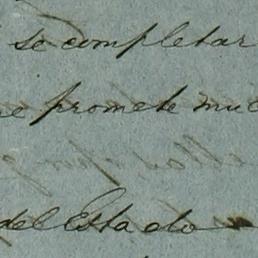 se completar
promete muc
del Estado